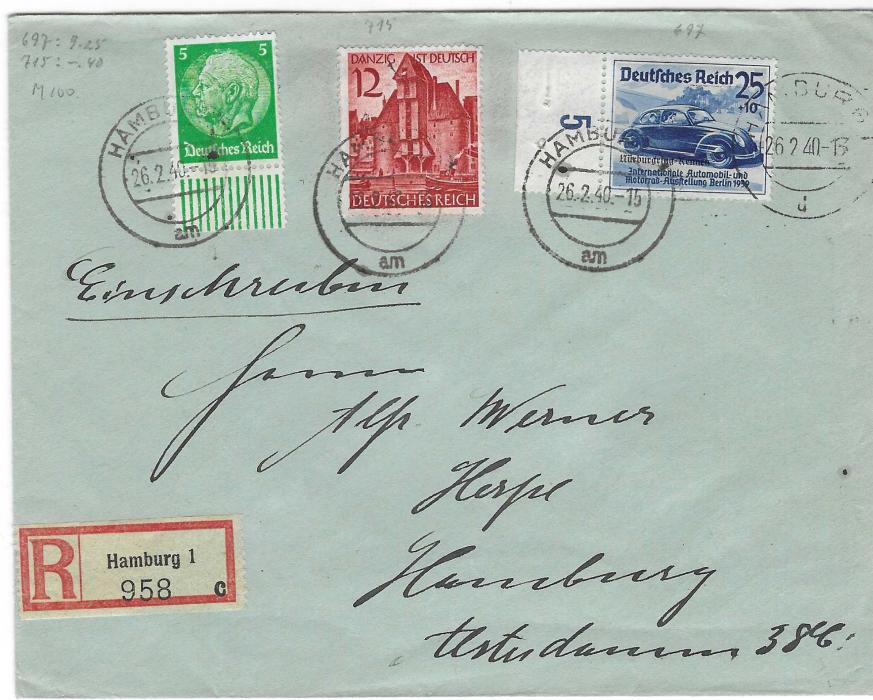 697: 9.25
715: -.40
M 100.
715
697
5 5
Deutsches Reich
DANZIG IST DEUTSCH
12
DEUTSCHES REICH
5
Deutsches Reich 25
+10
Nürburgring-Rennen
Internationale Automobil- und
Motorrad-Ausstellung Berlin 1939
HAMBU
26.2.40.-15
am
HAM
am
HAMBU
26.2.40.-15
am
BURG
26 2 40-15
d
Einschreiben
Herrn
Werner
Hamburg
Alsterdamm 38
R
Hamburg 1
958 c